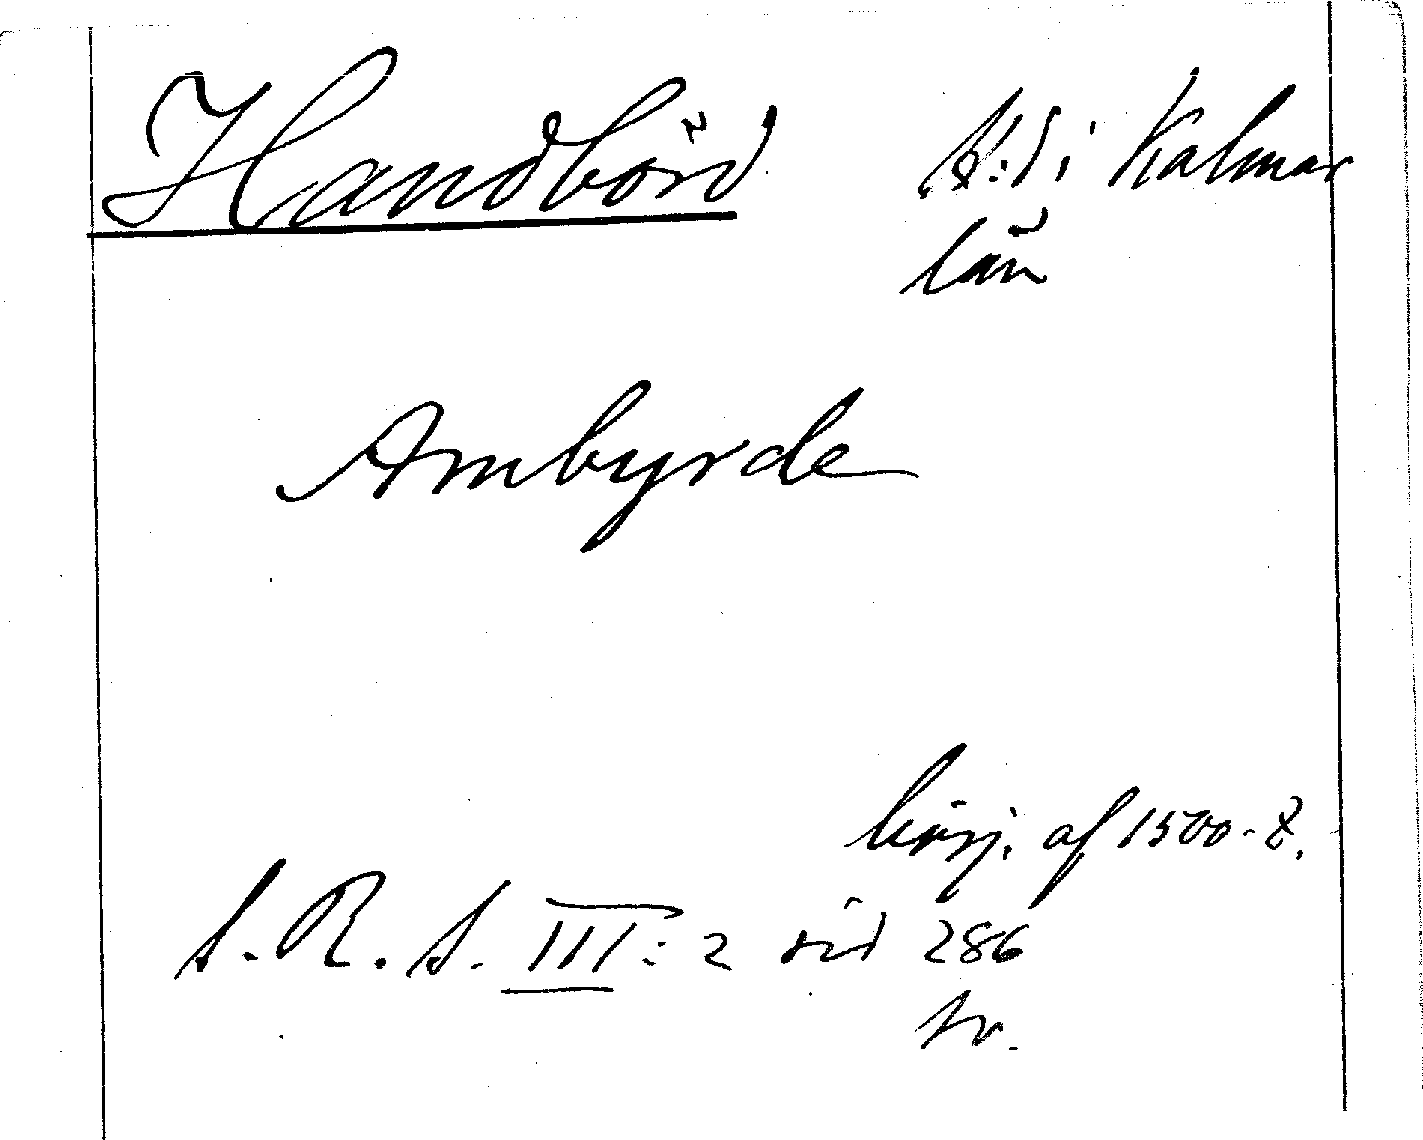 Handbörd H:d i Kalmar
län
Ambyrde
börj. af 1500-t.
S. R. S. III: 2 sid 286
tr.